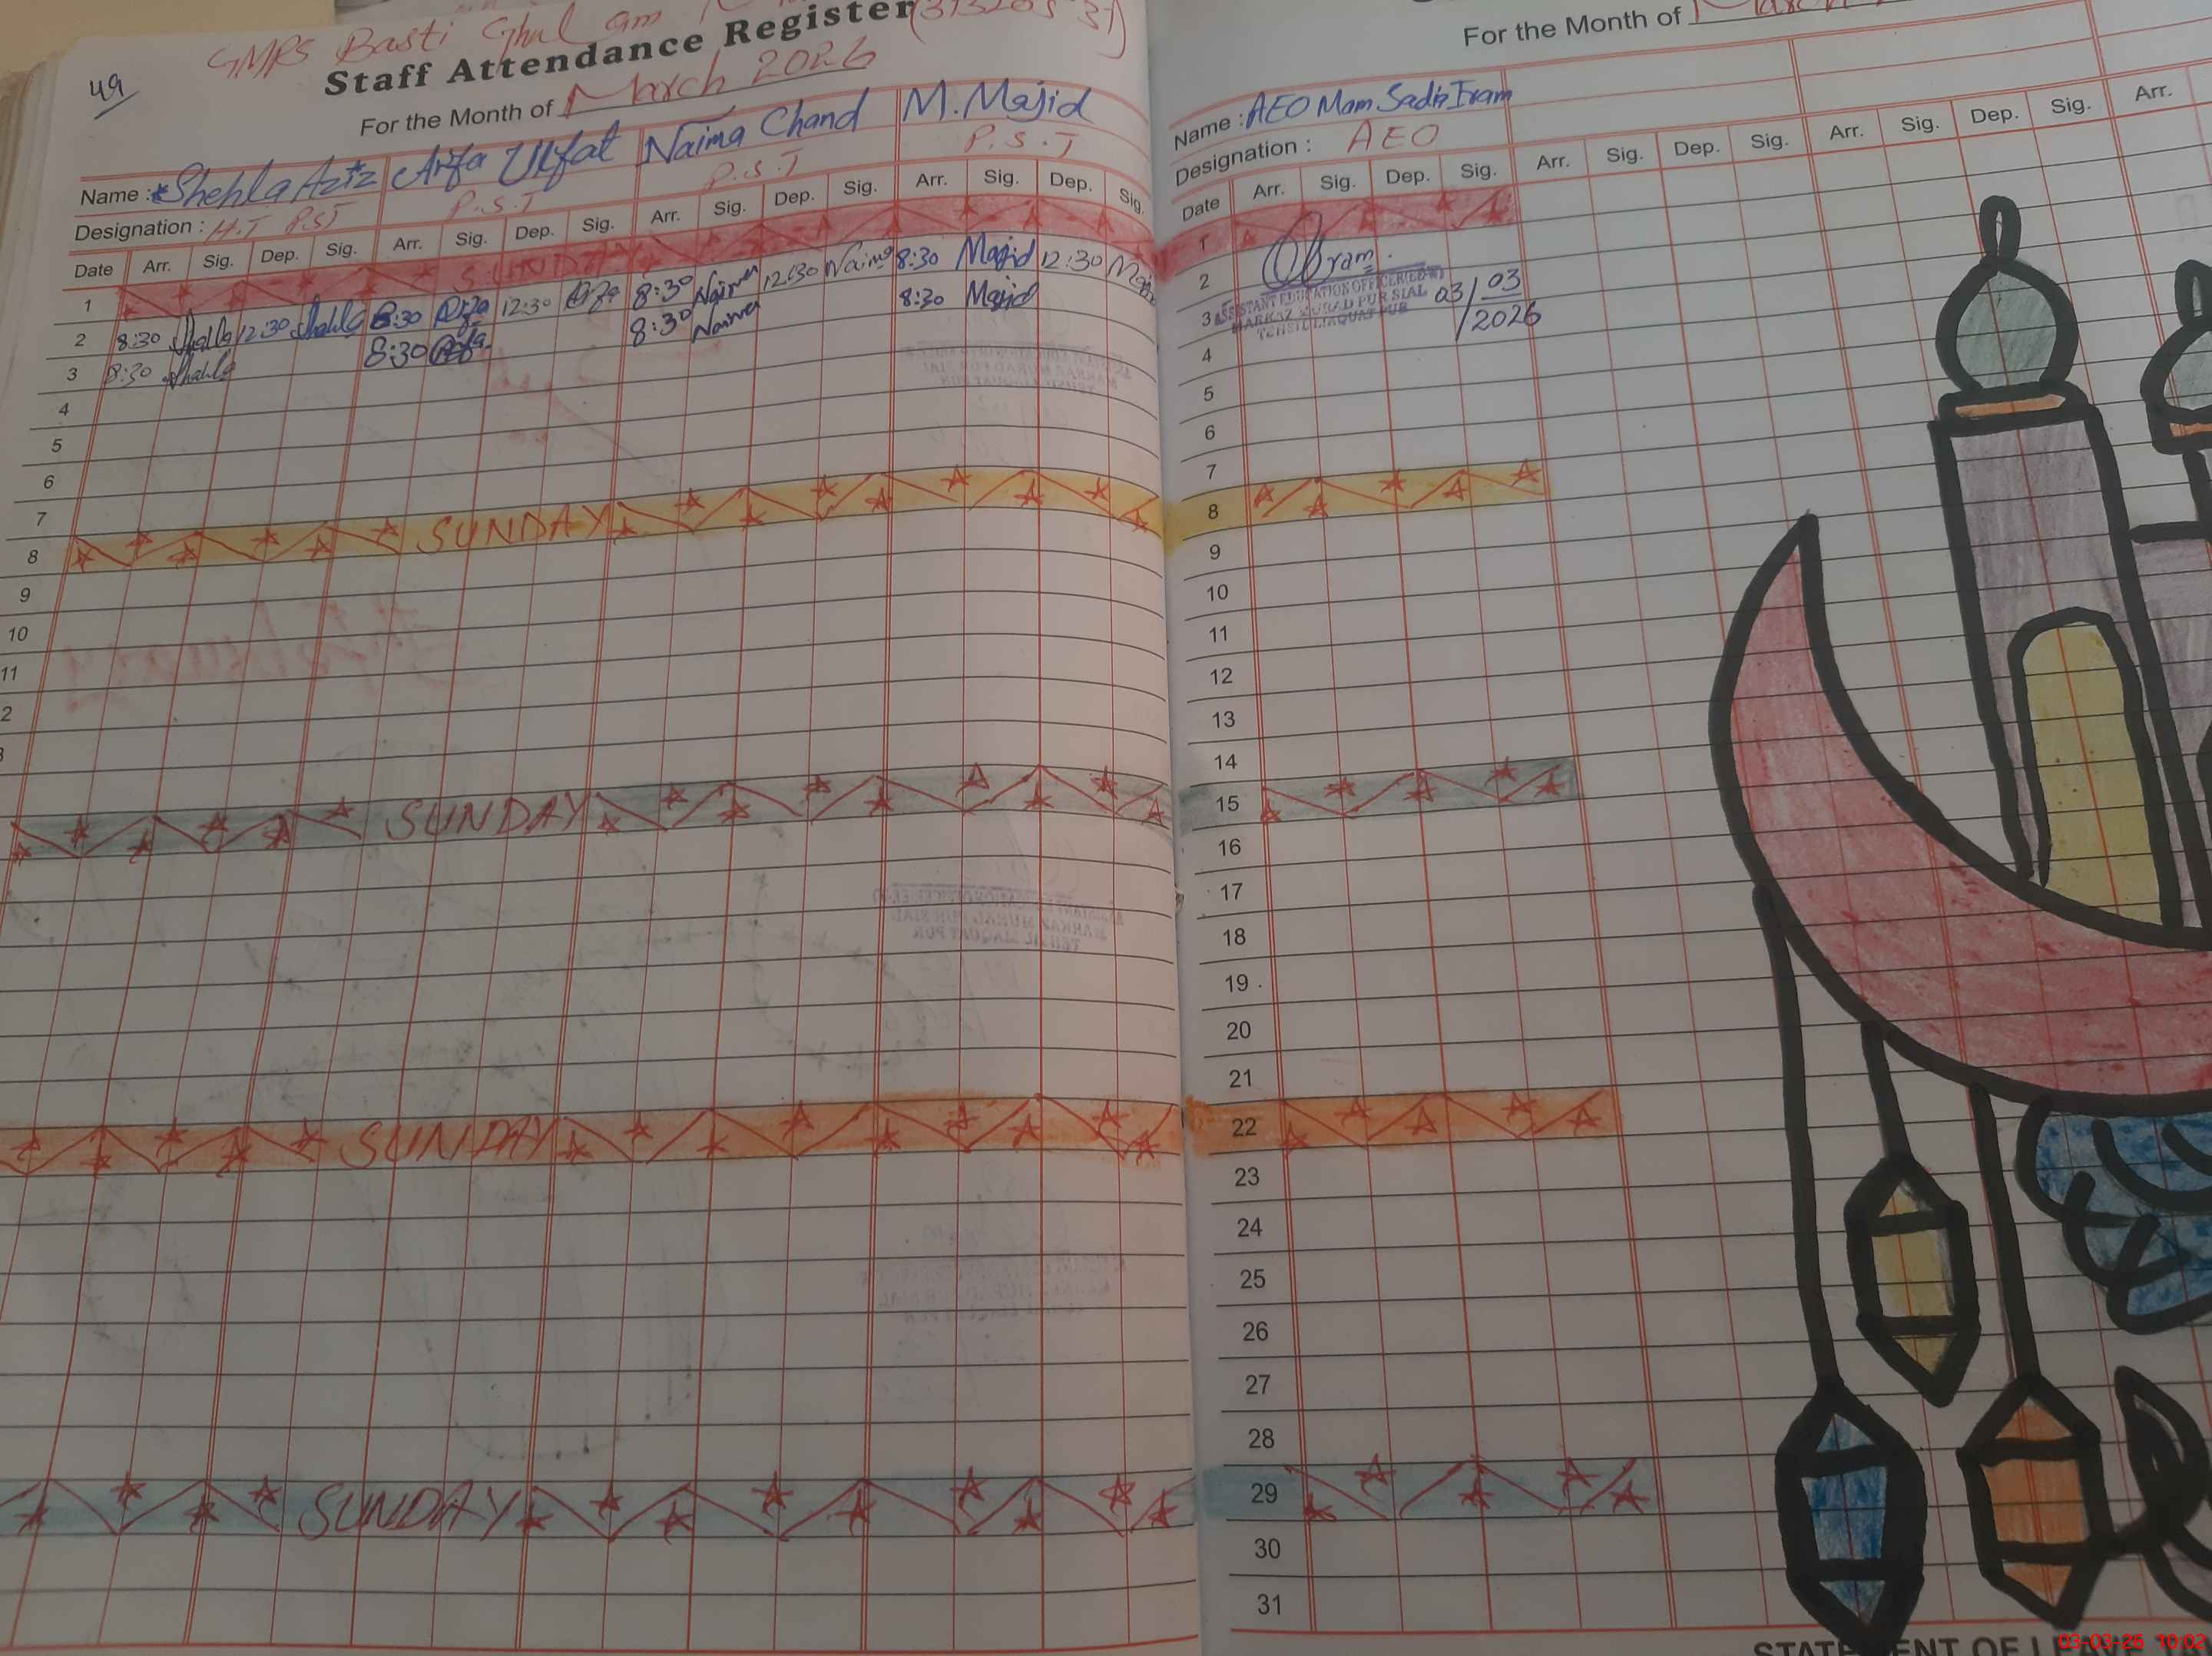 49
GMPS Basti Ghulam
Staff Attendance Register
For the Month of March 2026
Name : Shehla Aziz Arfa Ulfat Naima Chand M. Majid
Designation : H.T PST P.S.T P.S.T P.S.T
Date Arr. Sig. Dep. Sig. Arr. Sig. Dep. Sig. Arr. Sig. Dep. Sig. Arr. Sig. Dep. Sig.
1 SUNDAY
2 8:30 Shehla 12:30 Shehla 8:30 Arfa 12:30 Arfa 8:30 Naima 12:30 Naima 8:30 Majid 12:30 Majid
3 8:30 Shehla 8:30 Arfa 8:30 Naima 8:30 Majid
4
5
6
7
8 SUNDAY
9
10
11
2
3
SUNDAY
SUNDAY
SUNDAY
For the Month of March
Name : AEO Mam Sadia Iram
Designation : AEO
Date Arr. Sig. Dep. Sig. Arr. Sig. Dep. Sig. Arr. Sig. Dep. Sig. Arr.
1
2 Iram
3 ASSISTANT EDUCATION OFFICER
MARKAZ MURAD PUR SIAL
TEHSIL LIAQUAT PUR
03/03/2026
4
5
6
7
8
9
10
11
12
13
14
15
16
17
18
19
20
21
22
23
24
25
26
27
28
29
30
31
STATEMENT OF LEAVE
03-03-26 10:02